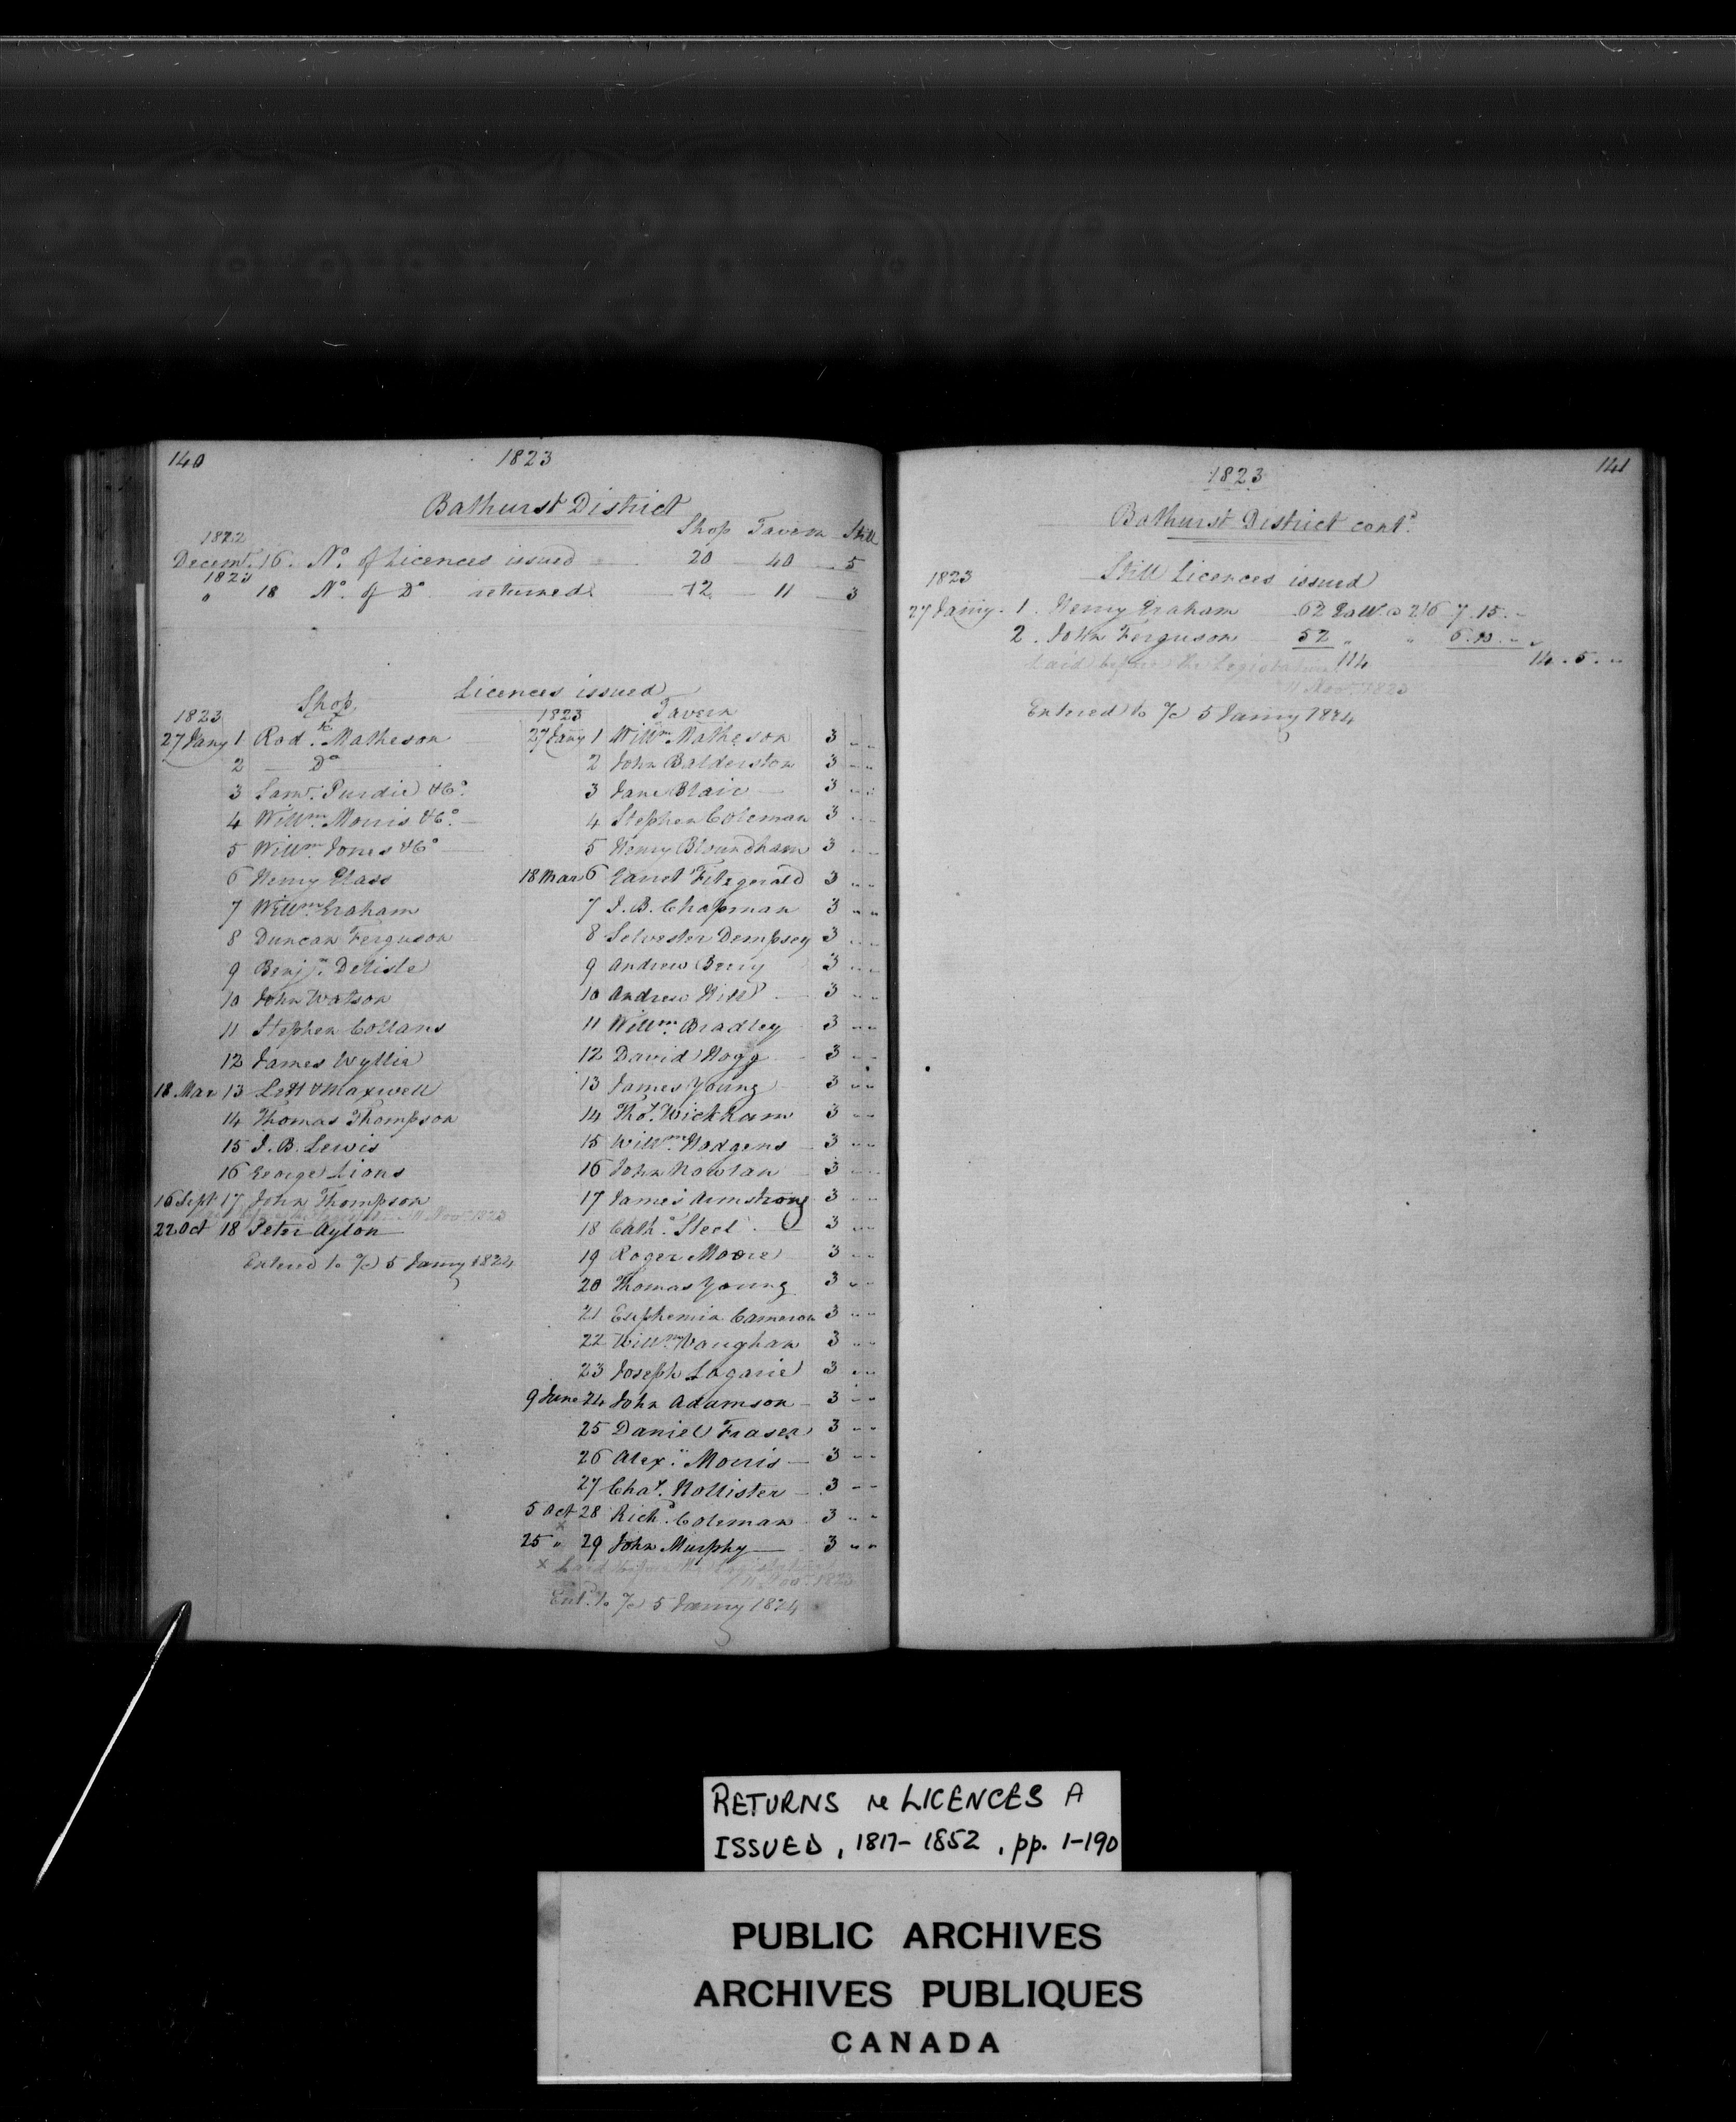 140
1823
Bathurst District
Shop Tavern Still
1822
Decemr. 16. No. of Licences issued 20 40 5
1823
" 18 No. of Do. returned 12 11 3
Licences issued
Shop
1823
27 Jany 1 Rodk. Matheson
2 Do
3 Saml. Purdie & Co.
4 Willm. Morris & Co.
5 Willm. Jones & Co
6 Henry Glass
7 Willm. Graham
8 Duncan Ferguson
9 Benjn. Delisle
10 John Watson
11 Stephen Collans
12 James Wyllie
18 Mar 13 Lett & Maxwell
14 Thomas Thompson
15 J. B. Lewis
16 George Lions
16 Sept 17 John Thompson
11 Novr. 1823
22 Oct 18 Peter Aylon
Entered to /c 5 Jany 1824
1823 Tavern
27 Jany 1 Willm. Matheson 3 " "
2 John Balderston 3 " "
3 Jane Blair 3 " "
4 Stephen Coleman 3 " "
5 Henry 3 " "
18 Mar 6 Garret Fitzgerald 3 " "
7 J. B. Chapman 3 " "
8 Selvester Dempsey 3 " "
9 Andrew Berry 3 " "
10 Andrew Hill 3 " "
11 Willm. Bradley 3 " "
12 David Hogg 3 " "
13 James Young 3 " "
14 Thos. Wickham 3 " "
15 Willm. Hodgens 3 " "
16 John Nowlan 3 " "
17 James Armstrong 3 " "
18 Cathe. Steel 3 " "
19 Roger Moore 3 " "
20 Thomas Young 3 " "
21 Euphemia Cameron 3 " "
22 Willm. Vaughan 3 " "
23 Joseph Lagarie 3 " "
9 June 24 John Adamson 3 " "
25 Daniel Fraser 3 " "
26 Alexr. Morris 3 " "
27 Chas. Hollister 3 " "
5 Oct 28 Richd. Coleman 3 " "
x
25 " 29 John Murphy 3 " "
x Laid before the Legislature
11 Novr. 1823
Entd. to /c 5 Jany 1824
141
1823
Bathurst District contd.
Still Licences issued
1823
27 Jany. 1. Henry Graham 62 Gall. @ 2/6 7. 15. "
2. John Ferguson 52 " " 6. 10. "
Laid before the Legislature 114 14. 5. "
11 Novr. 1823
Entered to /c 5 Jany 1824
RETURNS re LICENCES A
ISSUED, 1817-1852, pp. 1-190
PUBLIC ARCHIVES
ARCHIVES PUBLIQUES
CANADA